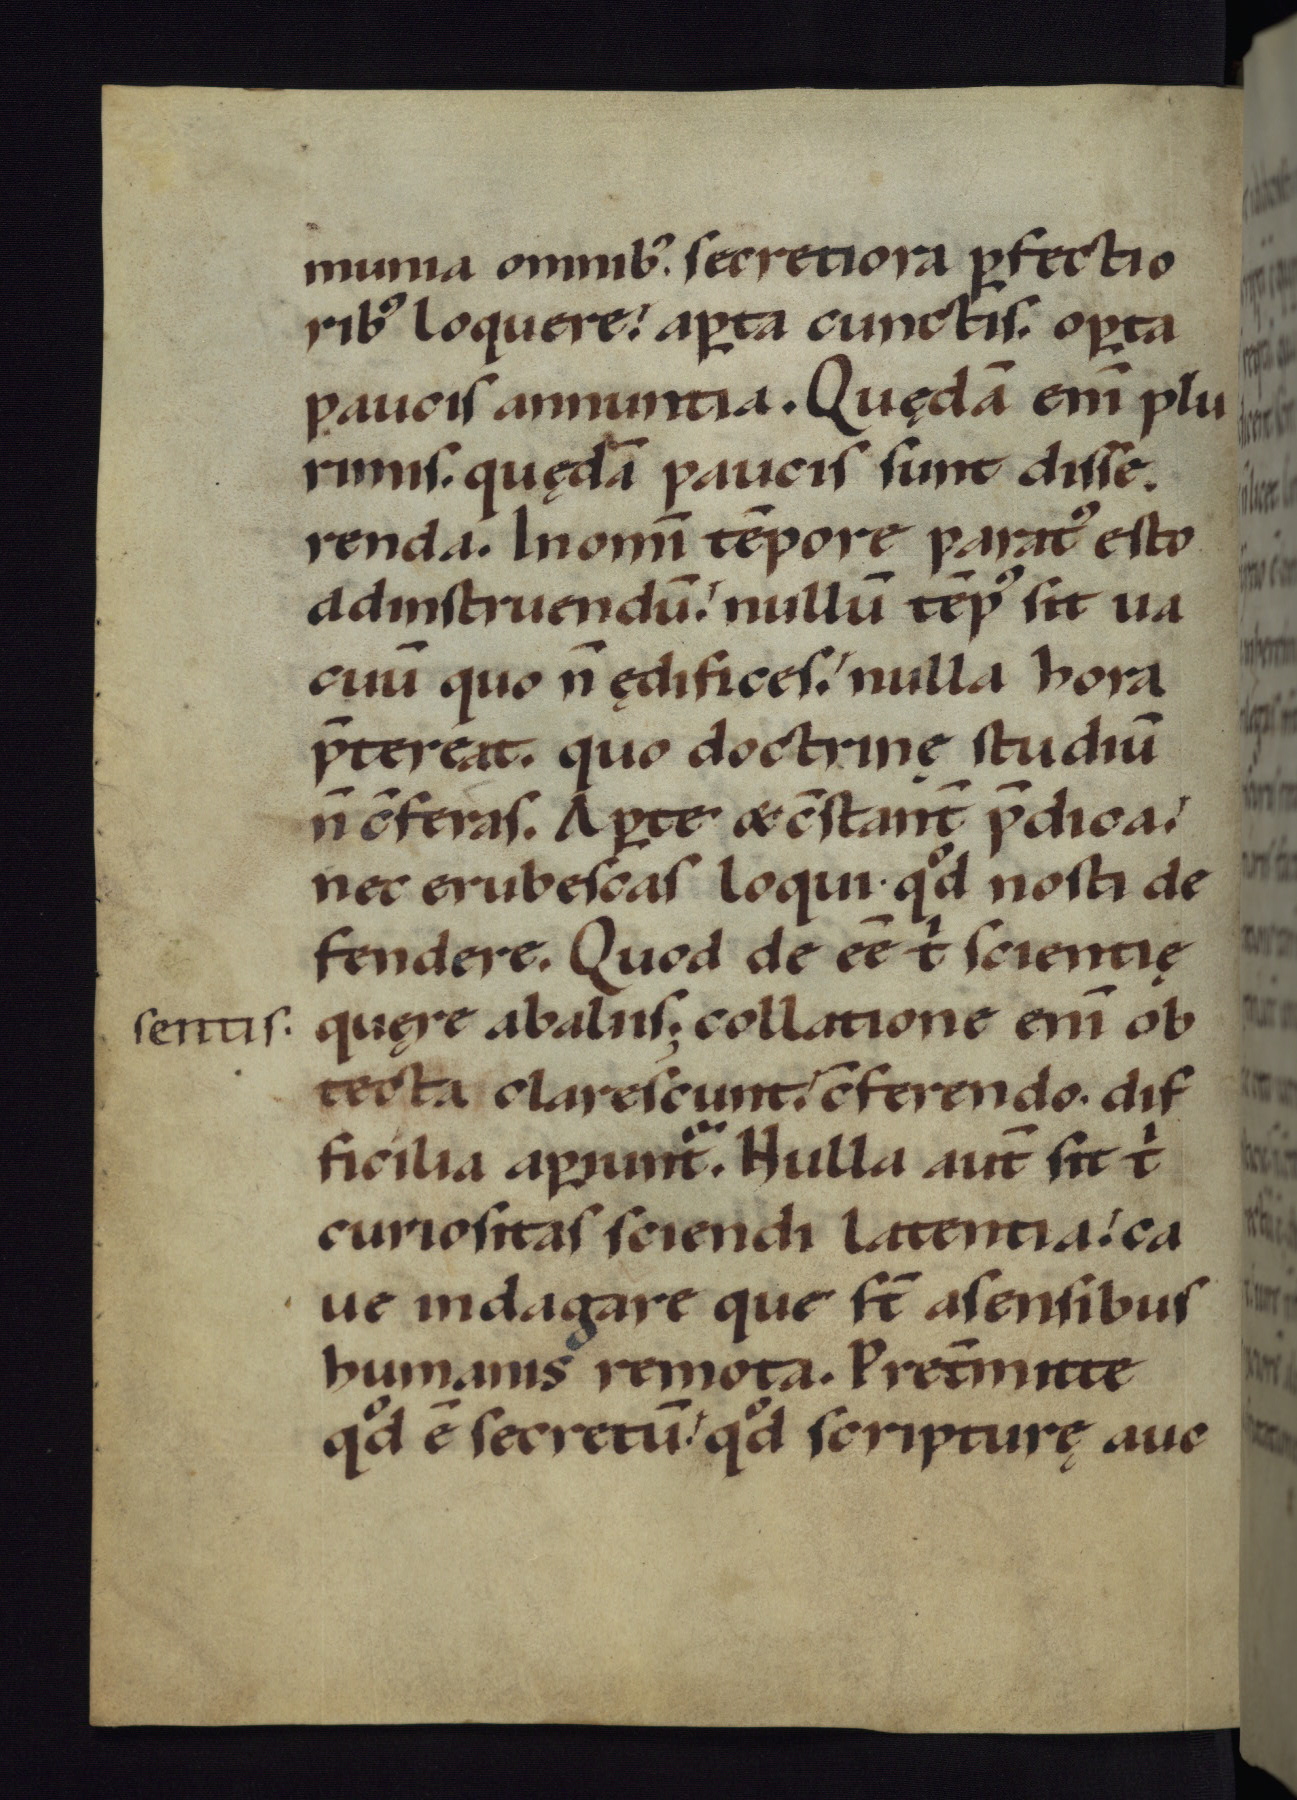 munia omnibꝰ. secretiora ꝑfectio
ribꝰ loquere. aꝑta cunctis. oꝑta
paucis annuntia. Quędā enī plu
rimis. quędā paucis sunt disse.
renda. Inomī tēpore paratꝰ esto
adinstruendū. nullū tēpꝰ sit ua
cuū quo n̄ ędifices. nulla hora
p̄tereat. quo doctrinę studiū
n̄ c̄feras. Aꝑte & c̄stant̄ p̄dica.
nec erubescas loqui. qͦd nosti de
fendere. Quod de eē t᷒i scientię
sentis.
quęre abaliis; collatione enī ob
tecta clarescunt. c̄ferendo. dif
ficilia aꝑiunt᷑. Nulla aut̄ sit tⁱ
curiositas sciendi latentia. ca
ue indagare que st̄ asensibus
humanis remota. Pret̄mitte
qͦd ē secretū. qͦd scripturę auc